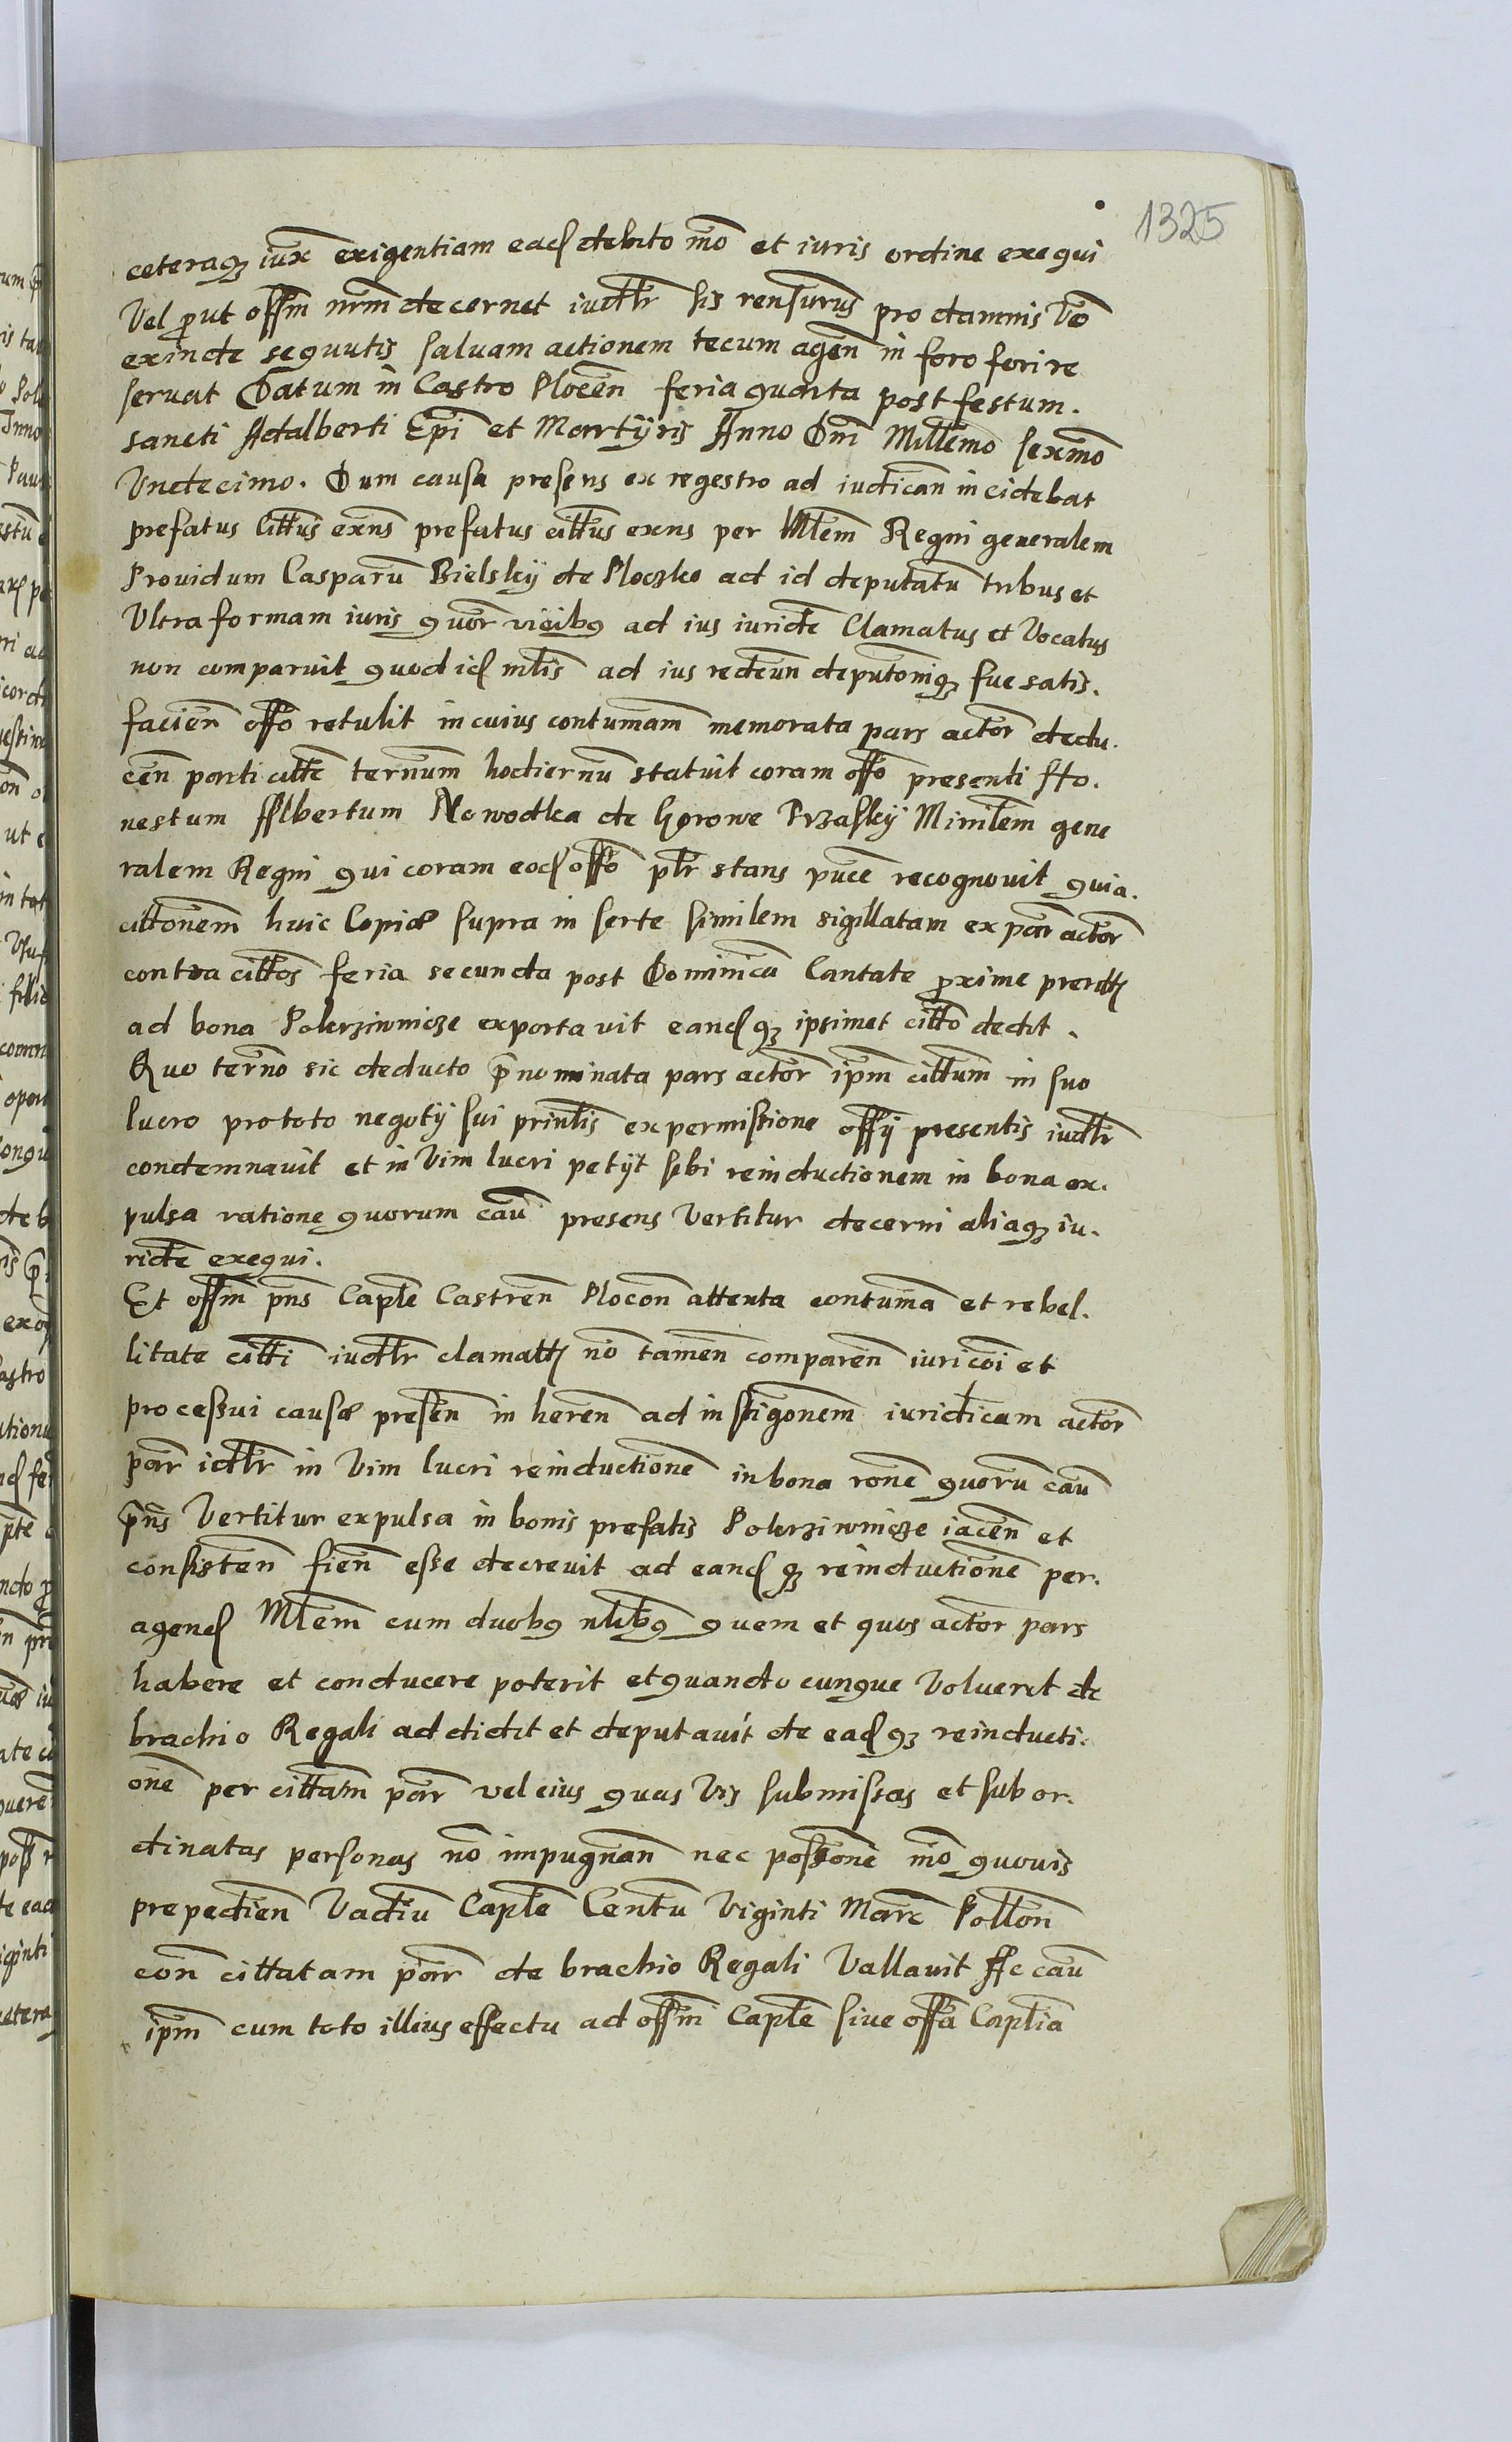 1325
ceteraq₃ iux̄ exigentiam ead debito mō et iuris ordine exequi
Vel put offm nrm decernet iudtr sis rensurus pro damnis vō
exinde sequutis saluam actionem tecum agen̄ in foro fori re
seruat Datum in Castro Plocen̄ feria quarta post festum.
sancti Adalberti Ep̄i et Martÿris Anno Dn̄i Millēmo sexmō
Vndecimo. Dum causa presens ex regestro ad iudican̄ incidebat
prefatus Cittus exn̄s prefatus cittus exns per Mlem̄ Regni generalem
Prouidum Casparū Bielskÿ de Ploczko ad id deputatū tribus et
Vltra formam iuris quor̄ vicibq ad ius iuridē Clamatus et Vocatus
non comparuit quod id mlīs ad ius redeun̄ deputonīq₃ sue satis.
facien̄ offō retulit in cuius contumam̄ memorata pars actor̄ dedu.
cen̄ parti cittē termn̄um hodiernū statuit coram offō presenti Ho.
nestum Albertum Nowodka de Gorowe Przaskÿ Minilem̄ gene
ralem Regni qui coram eod offō pltr stans puce recognouit quia.
cittonem̄ huic Copiæ supra in serte similem sigillatam ex par̄ actor̄
contra cittos feria secunda post Dominicā Cantate proxime preritt
ad bona Pokrziwnicze exportauit eand q₃ ipsimet cittō dedit.
Quo termn̄o sic deducto p̄nominata pars actor̄ ipm̄ cittum̄ in suo
lucro pro toto negotÿ sui prinlīs ex permissione offÿ presentis iudtr
condemnauit et in Vim lucri petÿt sibi reinductionem in bona ex.
pulsa ratione quorum caū presens Vertitur decerni aliaq₃ iu.
ridē exequi.
Et offm pn̄s Caplē Castren̄ Plocen̄ attenta contumā et rebel.
litate citti iudtr clamatt nō tamen̄ comparen̄ iuri coī et
processui causæ presen̄ in heren̄ ad instigonem̄ iuridicam actor̄
par̄ idtr in Vim lucri reinductionē in bona ronē quorū caū
pn̄s Vertitur expulsa in bonis prefatis Pokrziwnicze iacen̄ et
consisten̄ fien̄ esse decreuit ad eand q₃ reinductionē per.
agend Mlem̄ cum duobq nlibq quem et quos actor̄ pars
habere et conducere poterit et quando cunque Voluerit de
brachio Regali addidit et deputauit de ead q₃ reinducti.
onē per cittam̄ par̄ vel eius quas Vis submissas et subor.
dinatas personas nō impugnan̄ nec possonē mō quouis
prepedien̄ Vadiū Caplē Centū Viginti Marc̄ Pollon̄
con̄ cittatam par̄ de brachio Regali Vallauit Ac caū
ipm̄ cum toto illius effectu ad offm Caplē siue offā Caplīa